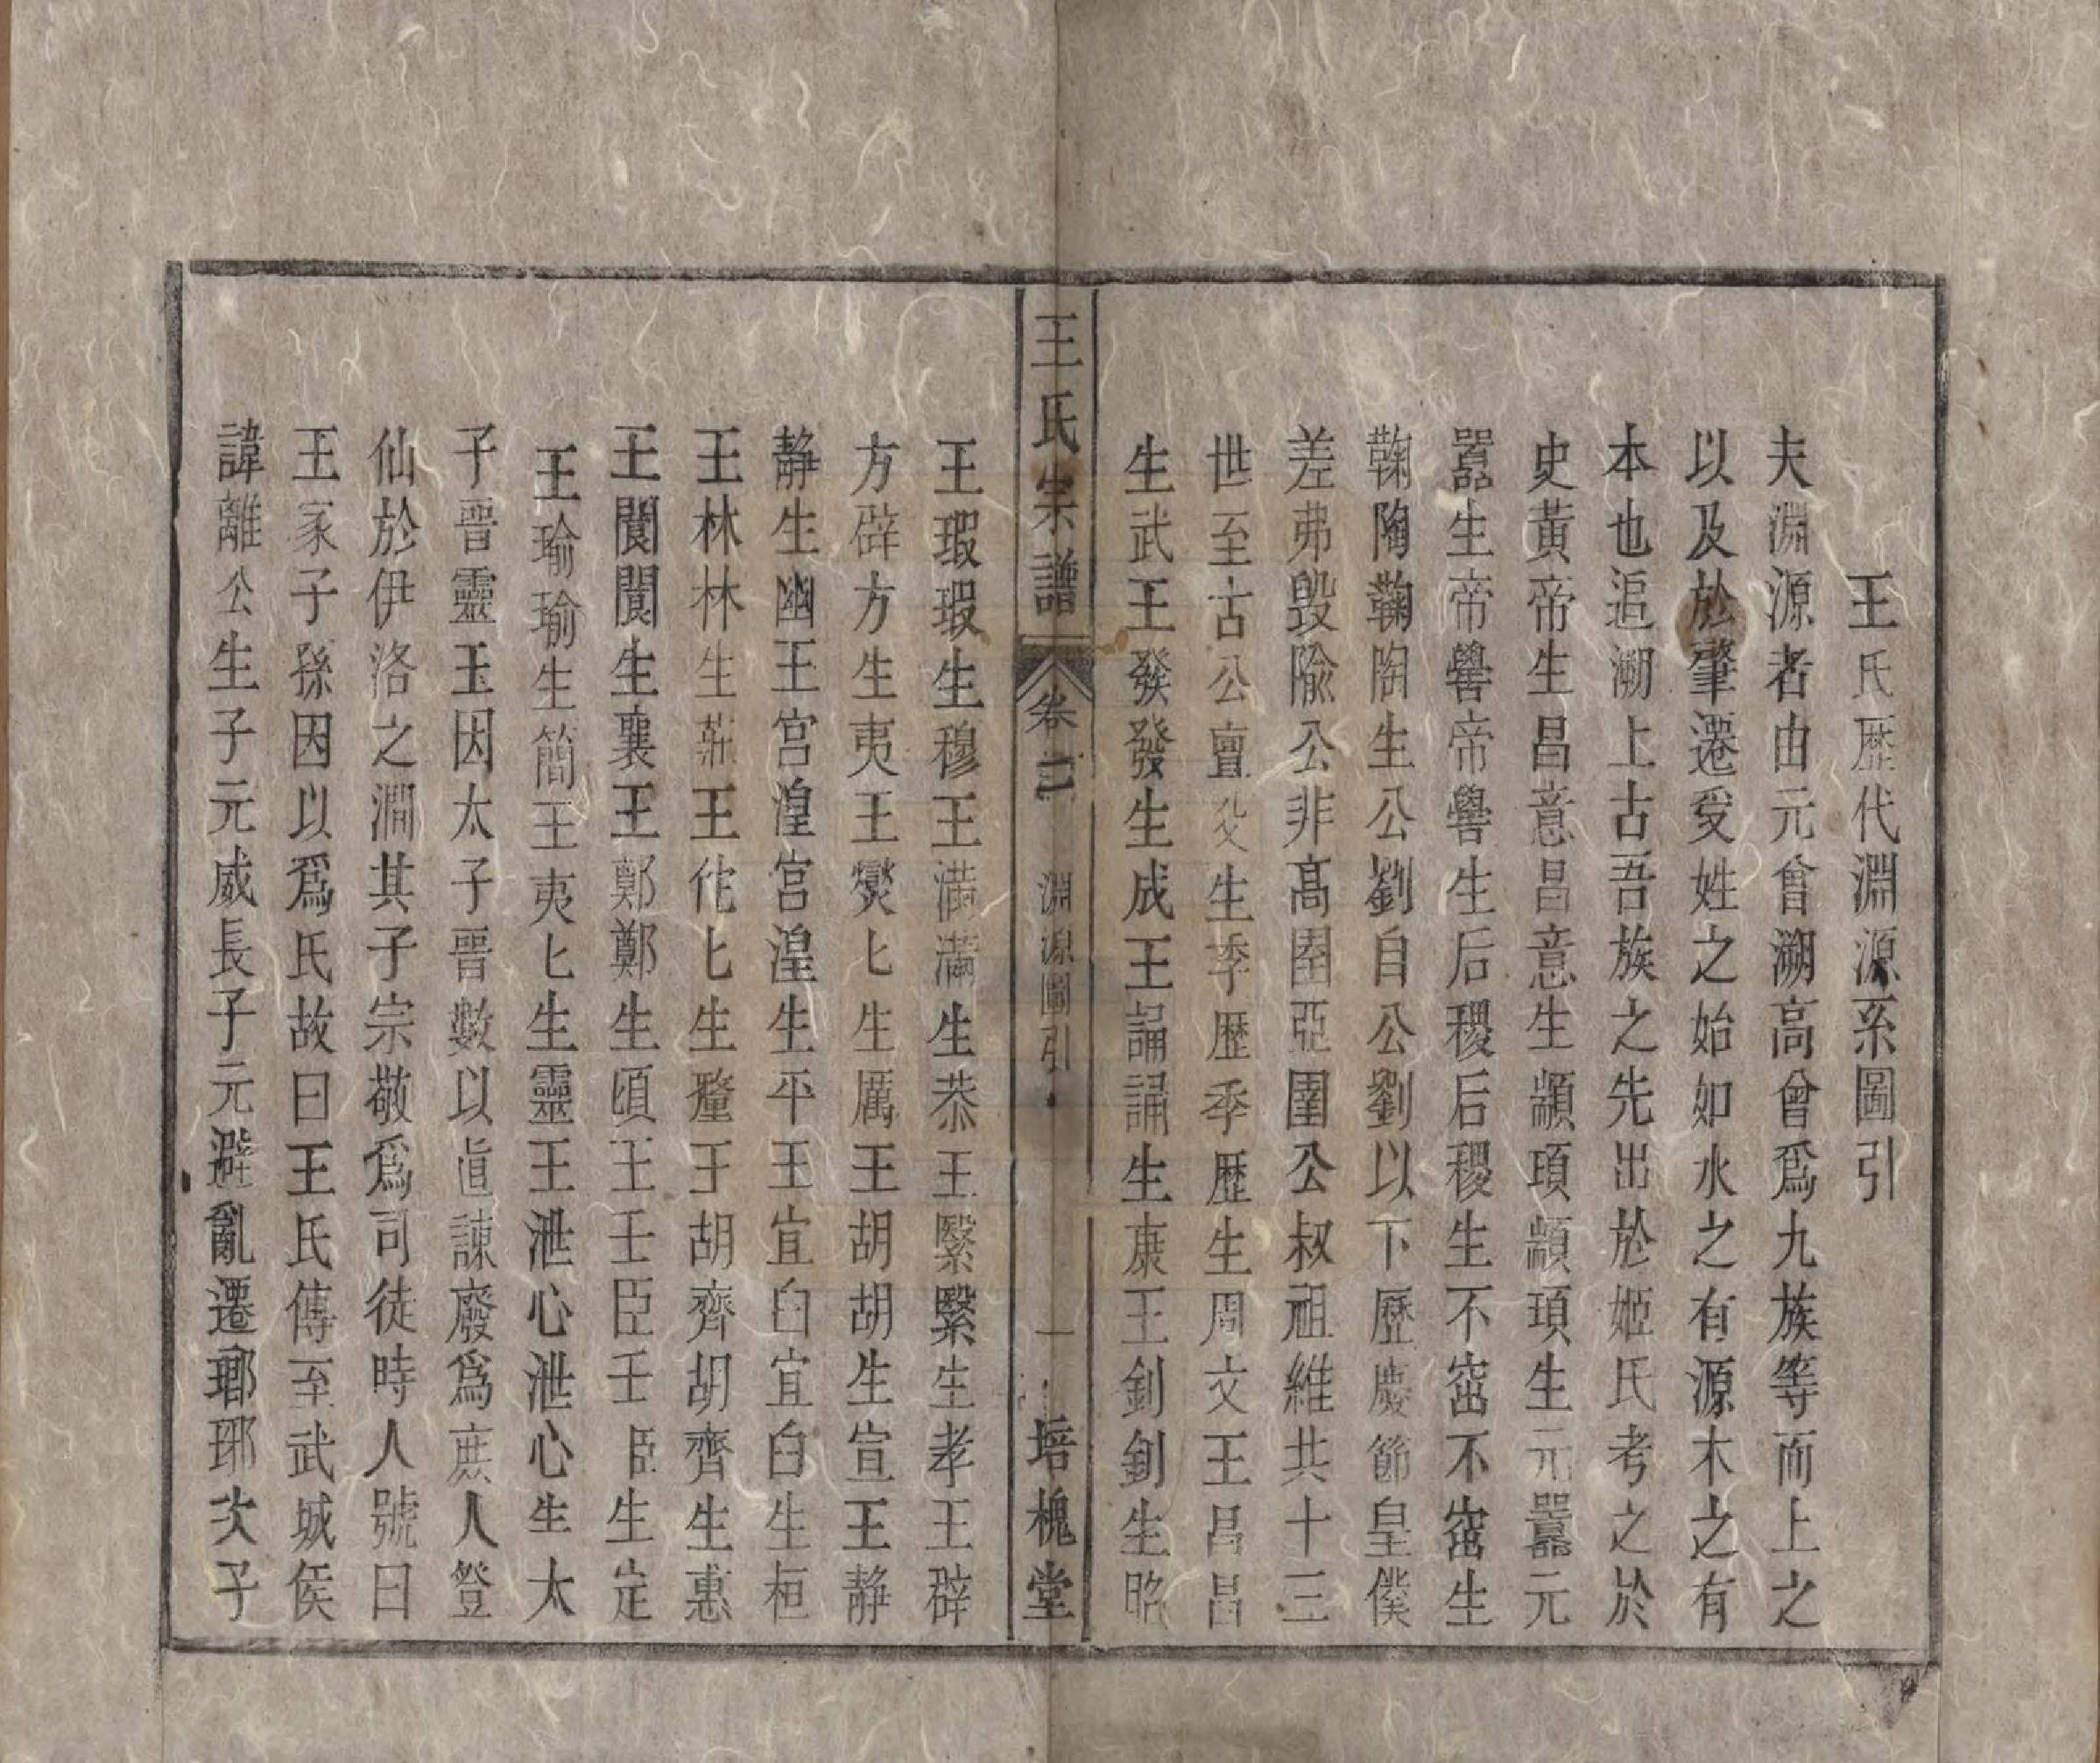 王氏歷代淵源系圖引
夫淵源者由元會溯高曾爲九族等而上之
以及於肇遷受姓之始如水之有源木之有
本也追溯上古吾族之先出於姬氏考之於
史黃帝生昌意昌意生顓頊顓頊生元囂元
囂生帝嚳帝嚳生后稷后稷生不窋不窋生
鞠陶鞠陶生公劉自公劉以下歷慶節皇僕
差弗毁隃公非高圉亞圉公叔祖維共十三
世至古公亶父生季歷季歷生周文王昌昌
生武王發發生成王誦誦生康王釗釗生昭
王氏宗譜
卷二
淵源圖引
一
培槐堂
王瑕瑕生穆王滿滿生恭王緊緊生孝王辟
方辟方生夷王燮匕生厲王胡胡生宣王靜
靜生幽王宮湟宮湟生平王宜臼宜臼生桓
王林林生莊王佗匕生釐王胡齊胡齊生惠
王閬閬生襄王鄭鄭生頃王壬臣壬臣生定
王瑜瑜生簡王夷匕生靈王泄心泄心生太
子晋靈王因太子晋數以直諫廢爲庶人登
仙於伊洛之澗其子宗敬爲司徒時人號曰
王家子孫因以爲氏故曰王氏傳至武城侯
諱離公生子元威長子元避亂遷瑯琊次子